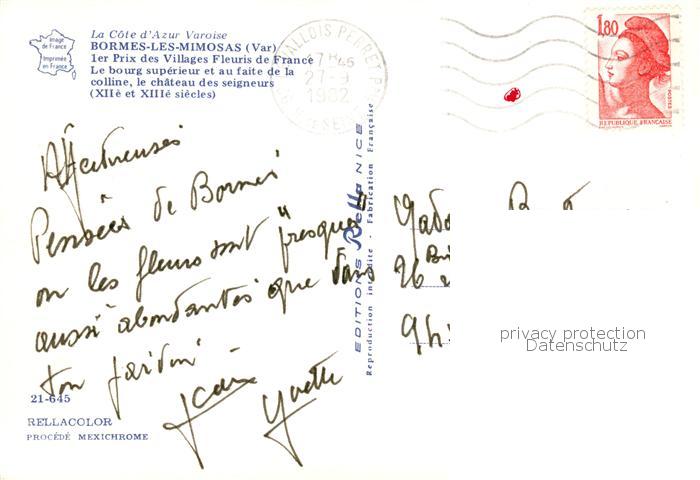 La Côte d'Azur Varoise
BORMES-LES-MIMOSAS (Var)
1er Prix des Villages Fleuris de France
Le bourg supérieur et au faite de la
colline, le château des seigneurs
(XIIè et XIIIé siècles)
Image
de France
Imprimée
en France
17H45
27-9
1982
1,80
POSTES
REPUBLIQUE FRANÇAISE
Affectueuses
Pensées de Bormes
ou les fleurs sont "presque"
aussi abondantes que dans
ton jardin
Yvette
EDITIONS Rella NICE
Reproduction interdite - Fabrication Française
26
privacy protection
Datenschutz
21-645
RELLACOLOR
PROCÉDÉ MEXICHROME